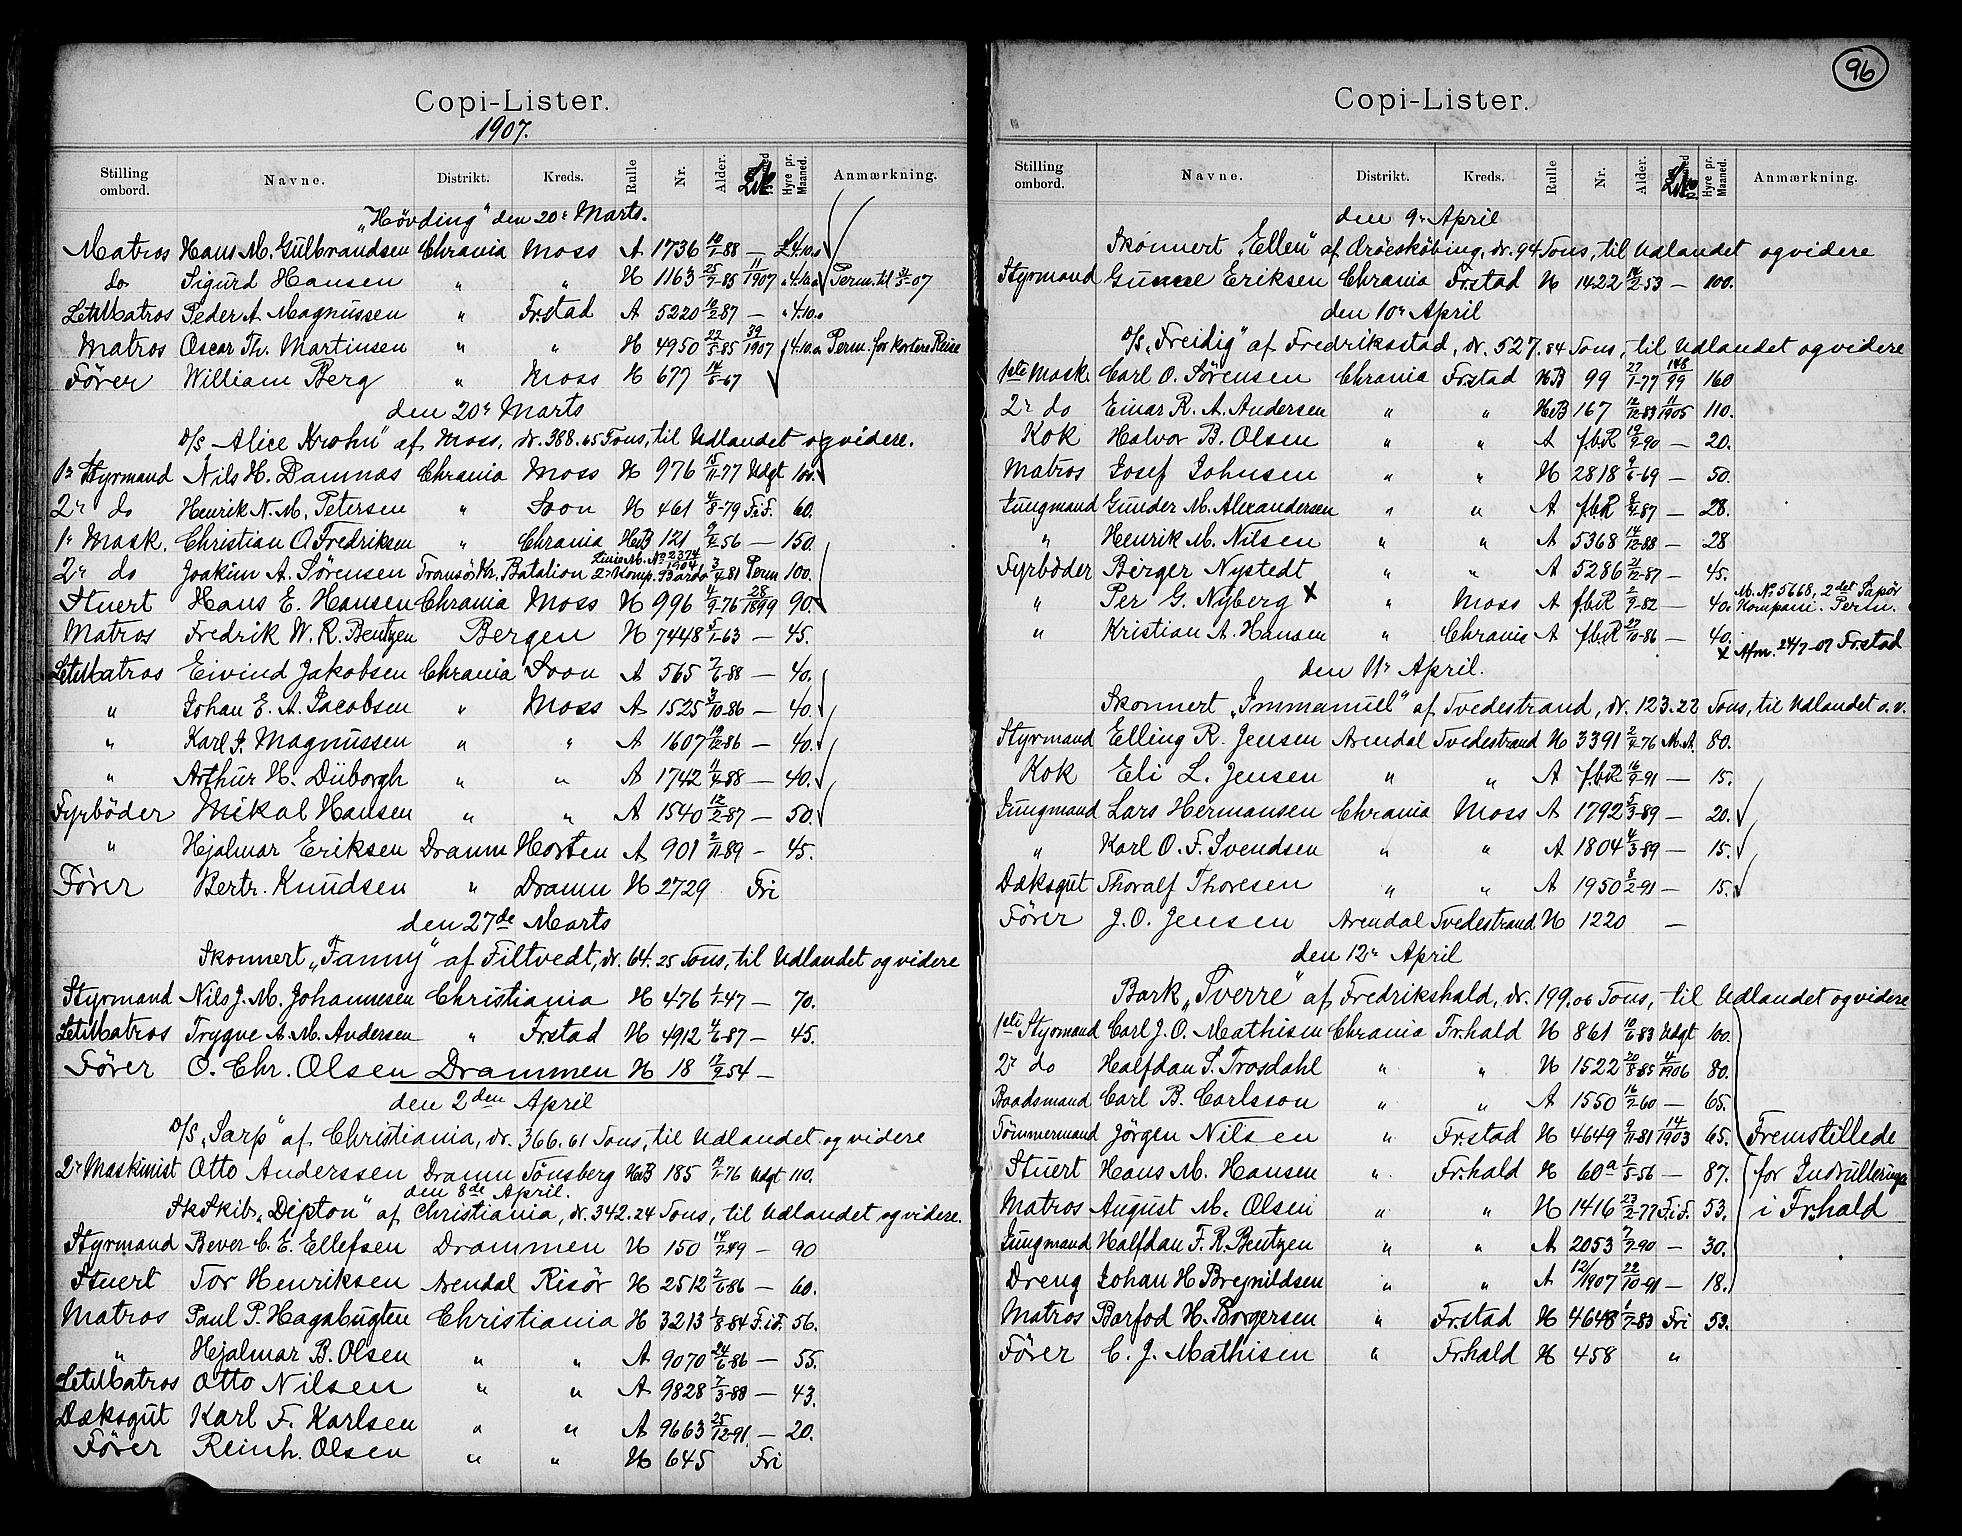 Copi-Lister.
1907.
Stilling ombord. Navne. Distrikt. Kreds. Rulle Nr. Alder. Hyre pr. Maaned. Anmærkning.
„Hövding" den 20de Marts.
Matros Hans M. Gulbrandsen Chrania Moss A 1736 10/7-88 — £4.10.0
do Sigurd Hansen " " H 1163 25/7-85 11/1907 " 4.10.0 Perm. til
LetMatros Peder A. Magnussen " Frstad A 5220 10/2-87 — " 4.10.0
Matros Oscar Th. Martinsen " " H 4950 22/5-85 39/1907 4.10.0 Perm. for kortere Reise
Förer William Berg " Moss H 677 14/6-67
den 20de Marts
D/S „Alice Krohn" af Moss, dr. 388.65 Tons, til Udlandet og videre.
1ste Styrmand Nils H. Damnæs Chrania Moss H 976 15/11-77 Udgt 100.
2den do Henrik N. M. Petersen " Soon H 461 4/8-79 F.i.F. 60.
1ste Mask. Christian O. Fredriksen " Chrania HB 121 9/4-56 — 150.
Linie M. No 2374/1904
2den do Joakim A. Sörensen Tromsö Kr. Batalion 2det Komp. Bardo 3/4-81 Perm. 100.
Stuert Hans E. Hansen Chrania Moss H 996 4/9-76 28/1899 90.
Matros Fredrik W. R. Bentzen Bergen H 7448 5/1-63 — 45.
LetMatros Eivind Jakobsen Chrania Soon A 565 7/6-88 — 40.
" Johan E. A. Jacobsen " Moss A 1525 3/10-86 — 40.
" Karl J. Magnussen " " A 1607 19/12-86 — 40.
" Arthur H. Düborgh " " A 1742 11/4-88 — 40.
Fyrböder Mikal Hansen " " A 1540 12/2-87 — 50.
" Hjalmar Eriksen Dramn Horten A 901 2/11-89 — 45.
Förer Bertr. Knudsen " Dramn H 2729 Fri
den 27de Marts
Skonnert „Fanny" af Filtvedt, dr. 64.25 Tons, til Udlandet og videre
Styrmand Nils J. M. Johannesen Christiania H 476 1/1-47 — 70.
LetMatros Trygve A. M. Andersen " Frstad H 4912 4/6-87 — 45.
Förer O. Chr. Olsen Drammen H 18 12/9-54 —
den 2den April
D/S „Sarp" af Christiania, dr. 366.61 Tons, til Udlandet og videre
2den Maskinist Otto Anderssen Dramn Tönsberg HB 185 -76 Udgt 110.
den 8de April.
SkSkib „Dipton" af Christiania, dr. 342.24 Tons, til Udlandet og videre.
Styrmand Bever C. E. Ellefsen Drammen H 150 14/7-49 — 90
Stuert Tor Henriksen Arendal Risör H 2512 2/6-86 — 60.
Matros Paul P. Hagabugten Christiania H 3213 1/8-84 F.i.F. 56.
" Hjalmar B. Olsen " " A 9070 24/6-86 — 55.
LetMatros Otto Nilsen " " A 9828 7/3-88 — 43.
Dæksgut Karl F. Karlsen " " A 9663 25/12-91 — 20.
Förer Reinh. Olsen " " H 645 Fri
96
Copi-Lister.
Stilling ombord. Navne. Distrikt. Kreds. Rulle Nr. Alder. Hyre pr. Maaned. Anmærkning.
den 9de April
Skonnert „Ellen" af Æröesköbing, dr. 94 Tons, til Udlandet og videre
Styrmand Eriksen Chrania Frstad H 1422 14/2-53 — 100.
den 10de April
D/S „Freidig" af Fredriksstad, dr. 527.84 Tons, til Udlandet og videre
1ste Mask. Carl O. Sörensen Chrania Frstad HB 99 27/1-77 148/99 160
2den do Einar R. A. Andersen " " HB 167 12/12-83 11/1905 110.
Kok Halvor B. Olsen " " A f.b.R 19/9-90 — 20.
Matros Josef Johnsen " " H 2818 9/6-69 — 50.
Jungmand Gunder M. Alexandersen " " A f.b.R 8/4-87 — 28.
" Henrik M. Nilsen " " A 5368 14/12-88 — 28
Fyrböder Birger Nystedt " " A 5286 21/12-87 — 45.
" Per G. Nyberg x " Moss A f.b.R 2/9-82 — 40. M. No 5668, 2det Sapör Kompani. Perm.
" Kristian A. Hansen " Chrania A f.b.R 27/10-86 — 40.
x Afm. 24/7-07 Frstad
den 11te April.
Skonnert „Immanuel" af Tvedestrand, dr. 123.22 Tons, til Udlandet o. v.
Styrmand Elling R. Jensen Arendal Tvedestrand H 3391 2/4-76 M.A. 80.
Kok Eli L. Jensen " " A f.b.R 16/9-91 — 15.
Jungmand Lars Hermansen Chrania Moss A 1792 5/3-89 — 20.
" Karl O. F. Svendsen " " A 1804 4/3-89 — 15.
Dæksgut Thoralf Thoresen " " A 1950 8/2-91 — 15.
Förer J. O. Jensen Arendal Tvedestrand H 1220 —
den 12te April
Bark „Sverre" af Fredrikshald, dr. 199.06 Tons, til Udlandet og videre
1ste Styrmand Carl J. O. Mathisen Chrania Fr.hald H 861 10/6-83 Udgt 100.
2den do Halfdan S. Trosdahl " " H 1522 20/8-85 4/1906 80.
Baadsmand Carl B. Carlsson " " A 1550 16/7-60 — 65.
Tömmermand Jörgen Nilsen " Fr.stad H 4649 9/11-81 14/1903 65. Fremstillede
Stuert Hans M. Hansen " Fr.hald H 60a 1/5-56 — 87. for Indrulleringen
Matros August M. Olsen " " H 1416 23/2-77 F.i.F. 53. i Fr.hald
Jungmand Halfdan F. R. Bentzen " " A 2053 7/7-90 — 30.
Dreng Johan H. Brynildsen " " A 12/1907 22/10-91 — 18.
Matros Barfod H. Borgersen " Fr.stad H 4648 1/7-83 Fri 53.
Förer C. J. Mathisen " Fr.hald H 458 "